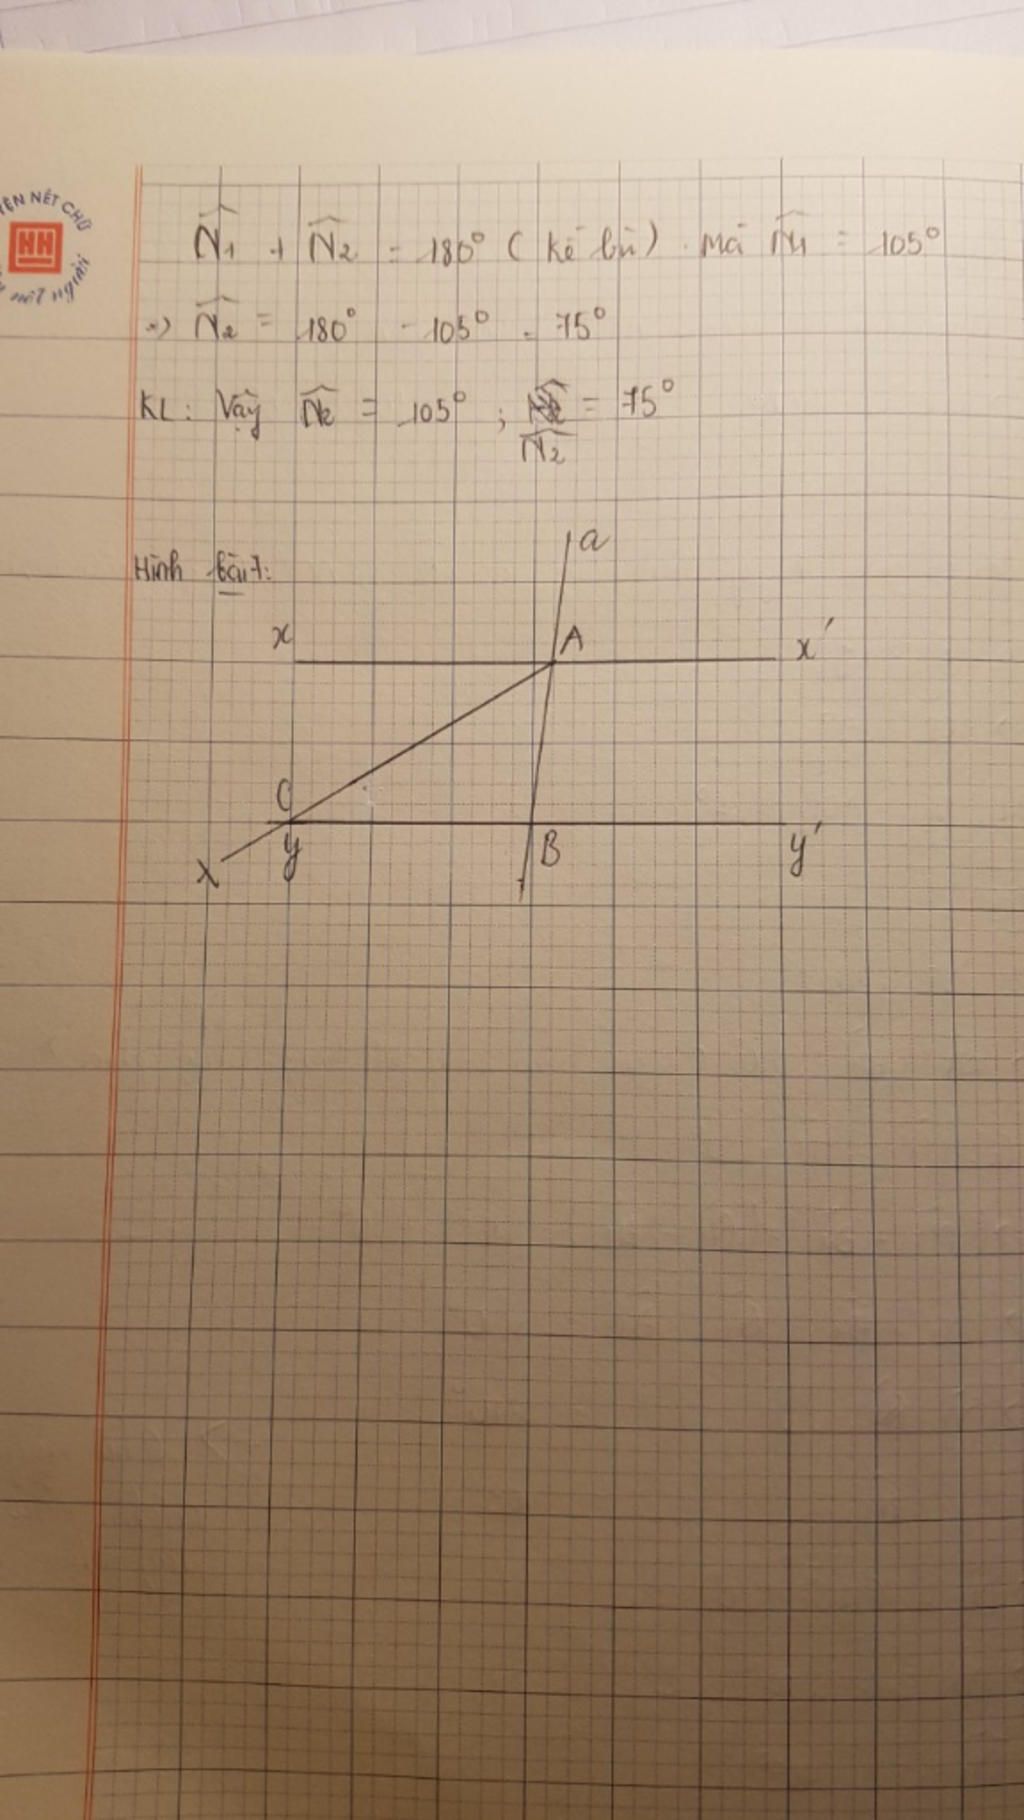 YỆN NÉT CHỮ
HH
nết người
N̂1 + N̂2 = 180° ( kề bù ) . mà N̂1 = 105°
=> N̂2 = 180° - 105° = 75°
KL: Vậy N̂2 = 105° ; = 75°
N̂2
Hình bài 7:
a
x A x'
C
x y B y'